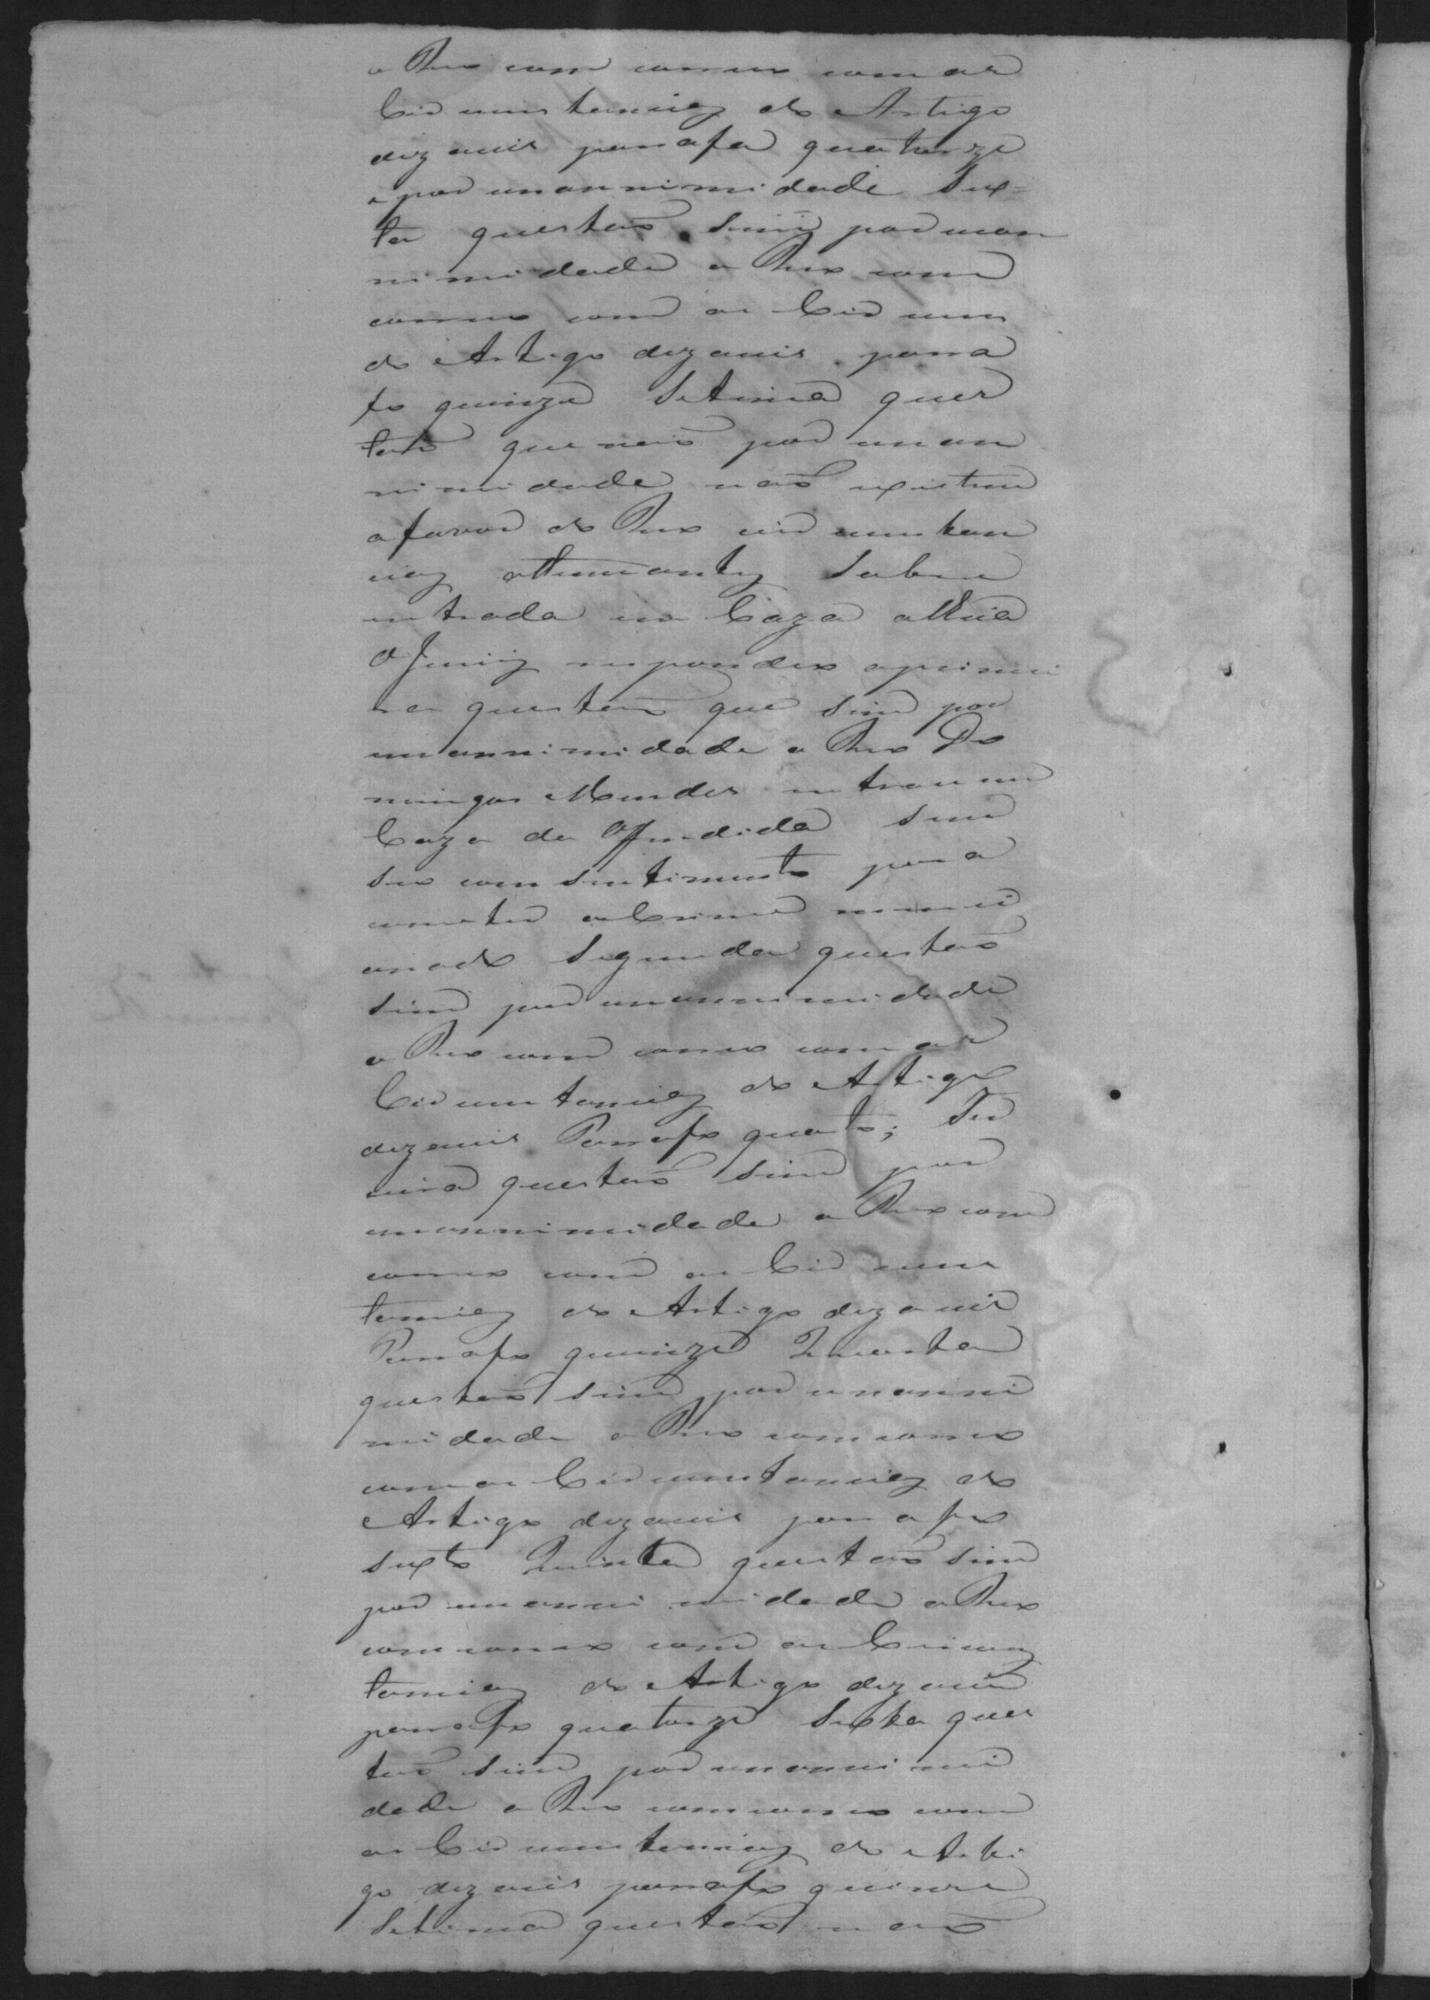 o Reo com correo com as
Circumstancias do Artigo
dezaceis parrafo quatorze
e por unannimidade Sex=
ta questão sim por unan
nimidade o Reo com
correo com as Circuns
do Artigo dezaceis parra
fo quinze Setima ques
tão que não por unan
nimidade não existem
a favor do Reo circunstan
cias attenuantes Sobre
entrada na Caza alheia
O Juri respondeo a primei
ra questão que sim por
unannimidade o Reo Do
mingos Mendes entrou na
Caza da Offendida sem
seo consentimento para
cometer o Crime menci
onado Segunda questão
sim por unannimidade
o Reo com correo com as
Circunstancias do Artigo
dezaceis Parrafo quarto; Ter
ceira questão sim por
unannimidade o Reo com
correo com as Circuns
tancias do Artigo dezaceis
Parrafo quinze Quarta
questão sim por unanni
midade o Reo com correo
com as Circunstancias do
Artigo dezaceis parrafo
sexto Quinta questão sim
por unannimidade o Reo
com correo com as Circuns
tancias do Artigo dezaceis
parrafo quatorze Sexta ques
tão sim por unannimi
dade o Reo com correo com
as Circunstancias do Arti
go dezaceis parrafo quinze
Setima questão não